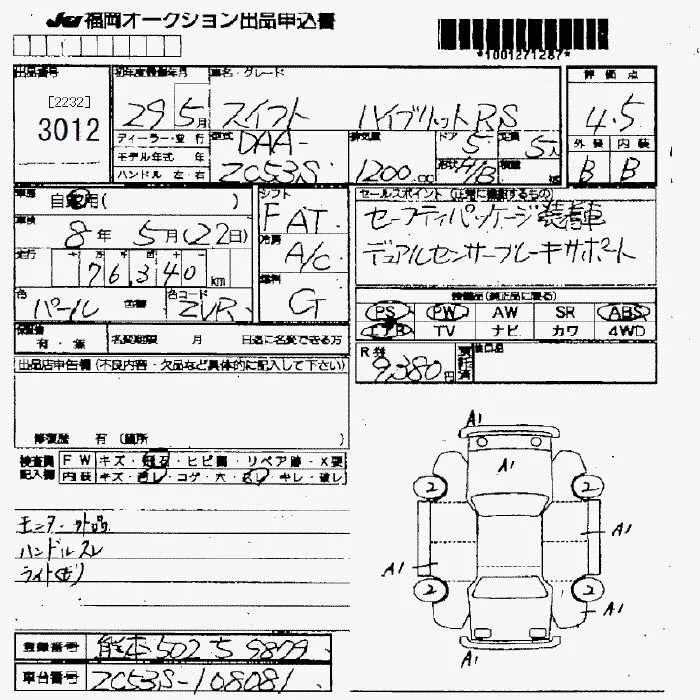 JU 福岡オークション出品申込書
*1001271287*
出品番号
[2232]
3012
初年度登録年月
29年5月
車名・グレード
スイフト ハイブリットRS
評価点
4.5
外装 内装
B B
ディーラー・並行
モデル年式 年
ハンドル 左・右
型式
DAA-
ZC53S
排気量
1200 cc
ドア
5
形状
H/B
定員
5人
積量
車歴
自家用( )
車検
8年 5月(22日)
走行
76,340 km
色
パール
色替
色コード
ZVR
シフト
FAT
冷房
A/C
燃料
G
セールスポイント (正常に機能するもの)
セーフティパッケージ装着車
デュアルセンサーブレーキサポート
装備品(純正品に限る)
PS PW AW SR ABS
エアB TV ナビ カワ 4WD
R券
9,380円
預託済
後日品
保証書
有・無
名変期限 月 日迄に名変できる方
出品店申告欄(不良内容・欠品など具体的に記入して下さい)
修復歴 有(箇所 )
検査員記入欄
FW キズ・飛石・ヒビ割・リペア跡・X要
内装 キズ・汚レ・コゲ・穴・スレ・キレ・破レ
モニター外品
ハンドルスレ
A1
A1
2 2
A1
A1
2 2
A1
A1
登録番号
熊本 502 ち 9809
車台番号
ZC53S-108081